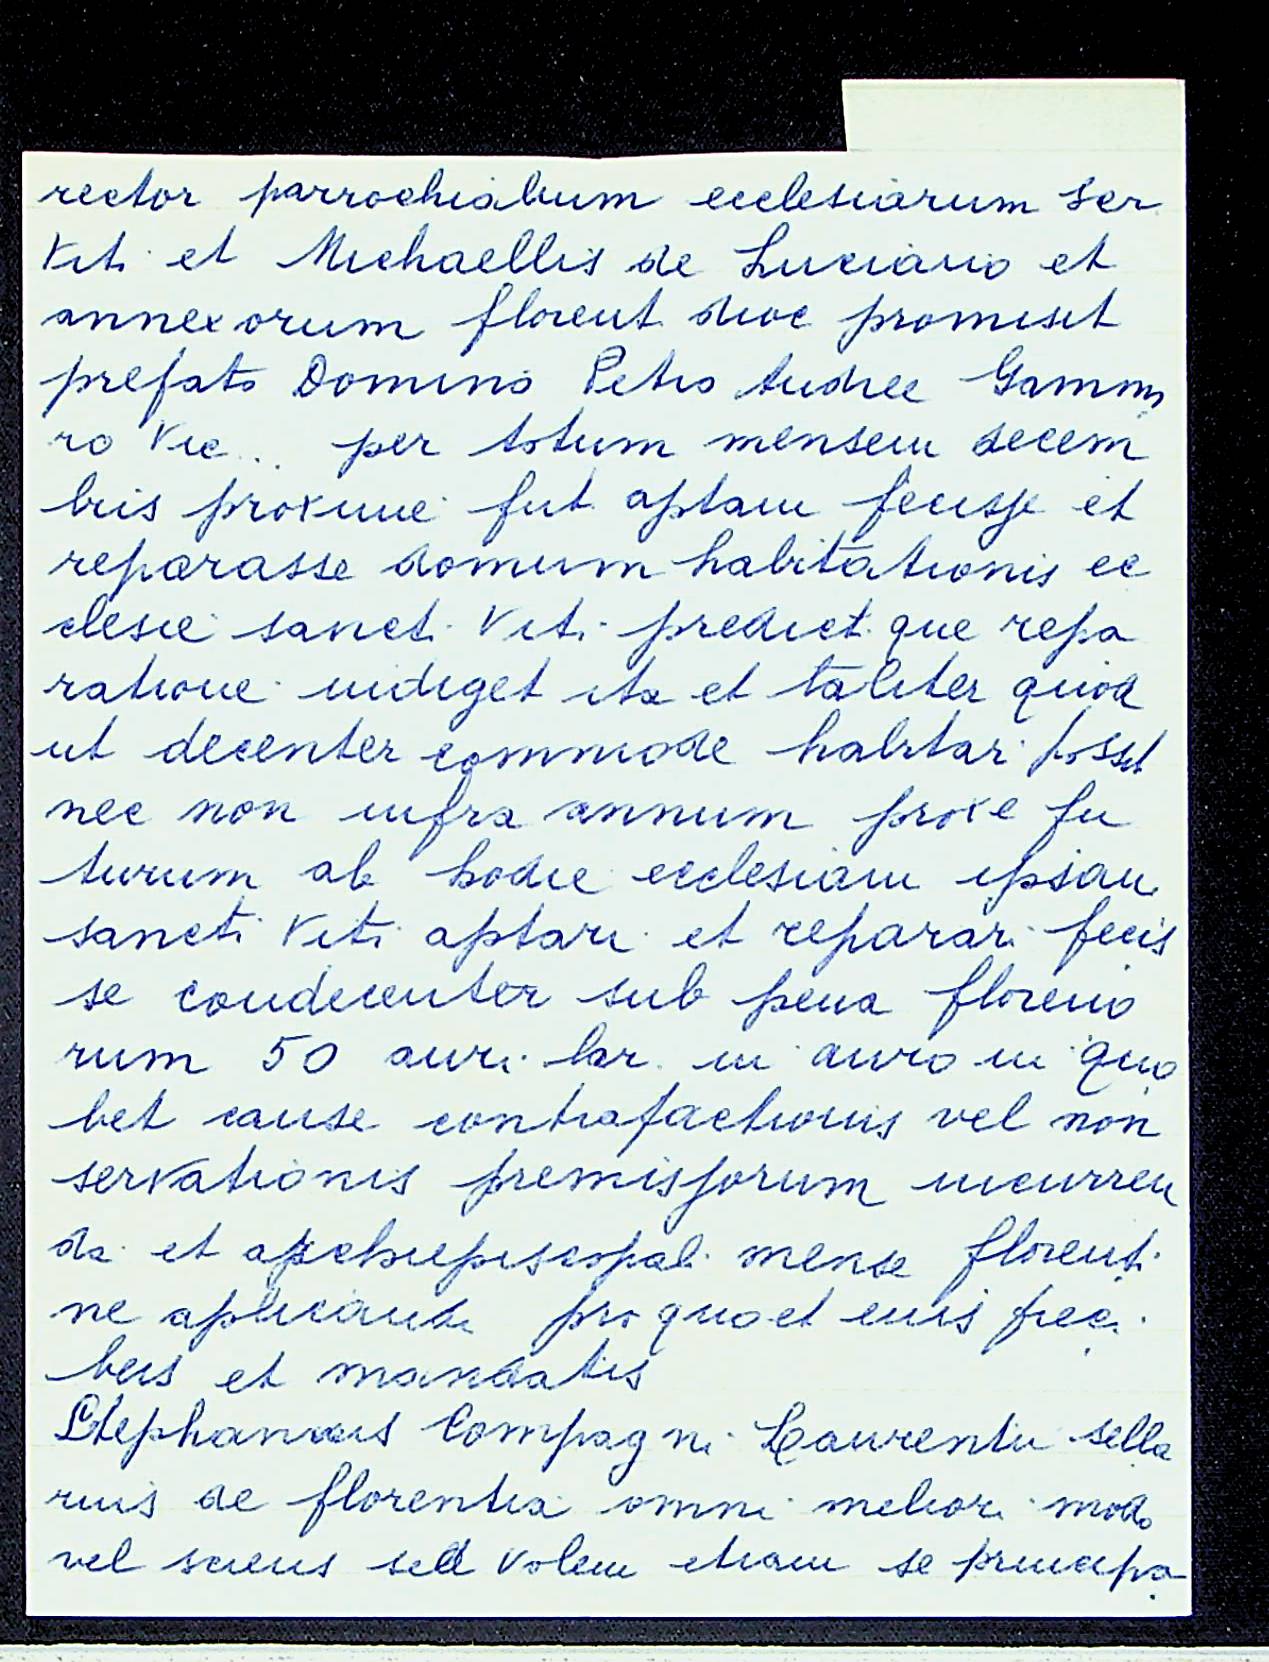 rector parrochialium ecclesiarum Ser
Viti et Michaellis de Luciano et
annexorum florent dioc promisit
prefato Domino Petro Andree Gamm
ro Vic.. per totum mensem decem
bris proxime fut aptam fecisse et
reparasse domum habitationis ec
clesie sancti Viti predict que repa
ratione indiget ita et taliter quod
ut decenter commode habitari posset
nec non infra annum proxe fu
turum ab hodie ecclesiam ipsam
sancti Viti aptari et reparari fecis
se condecenter sub pena floreno
rum 50 auri lar. in auro in quo
bet cause contrafactionis vel non
servationis premissorum incurren
da et archiepiscopali mense florenti
ne aplicandi pro quo et eius prec.
bus et mandatis
Stephanus Compagni Laurentii sella
rius de florentia omni meliori modo
vel sciens sed volens etiam se principa